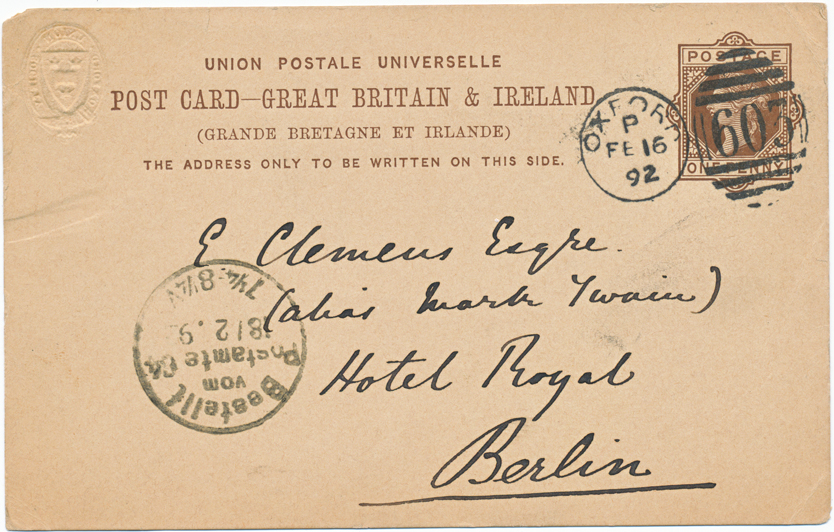 UNION POSTALE UNIVERSELLE
POST CARD—GREAT BRITAIN & IRELAND
(GRANDE BRETAGNE ET IRLANDE)
THE ADDRESS ONLY TO BE WRITTEN ON THIS SIDE.
POSTAGE
ONE PENNY
603
OXFORD
P
FE 16
92
E Clemens Esqre.
(alias Mark Twain)
Hotel Royal
Berlin
Bestellt
vom
Postamte
18/2.9
7¼-8¼